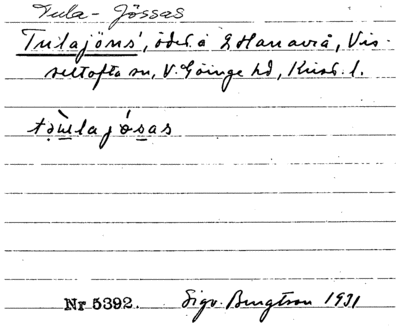 Tula-Jössas
Tulajöns', öde.å L Hanaviå, Vis-
seltofta sn, V. Göinge hd, Krist. l.
tòulajósas
Nr 5392. Sigv. Bengtson 1931